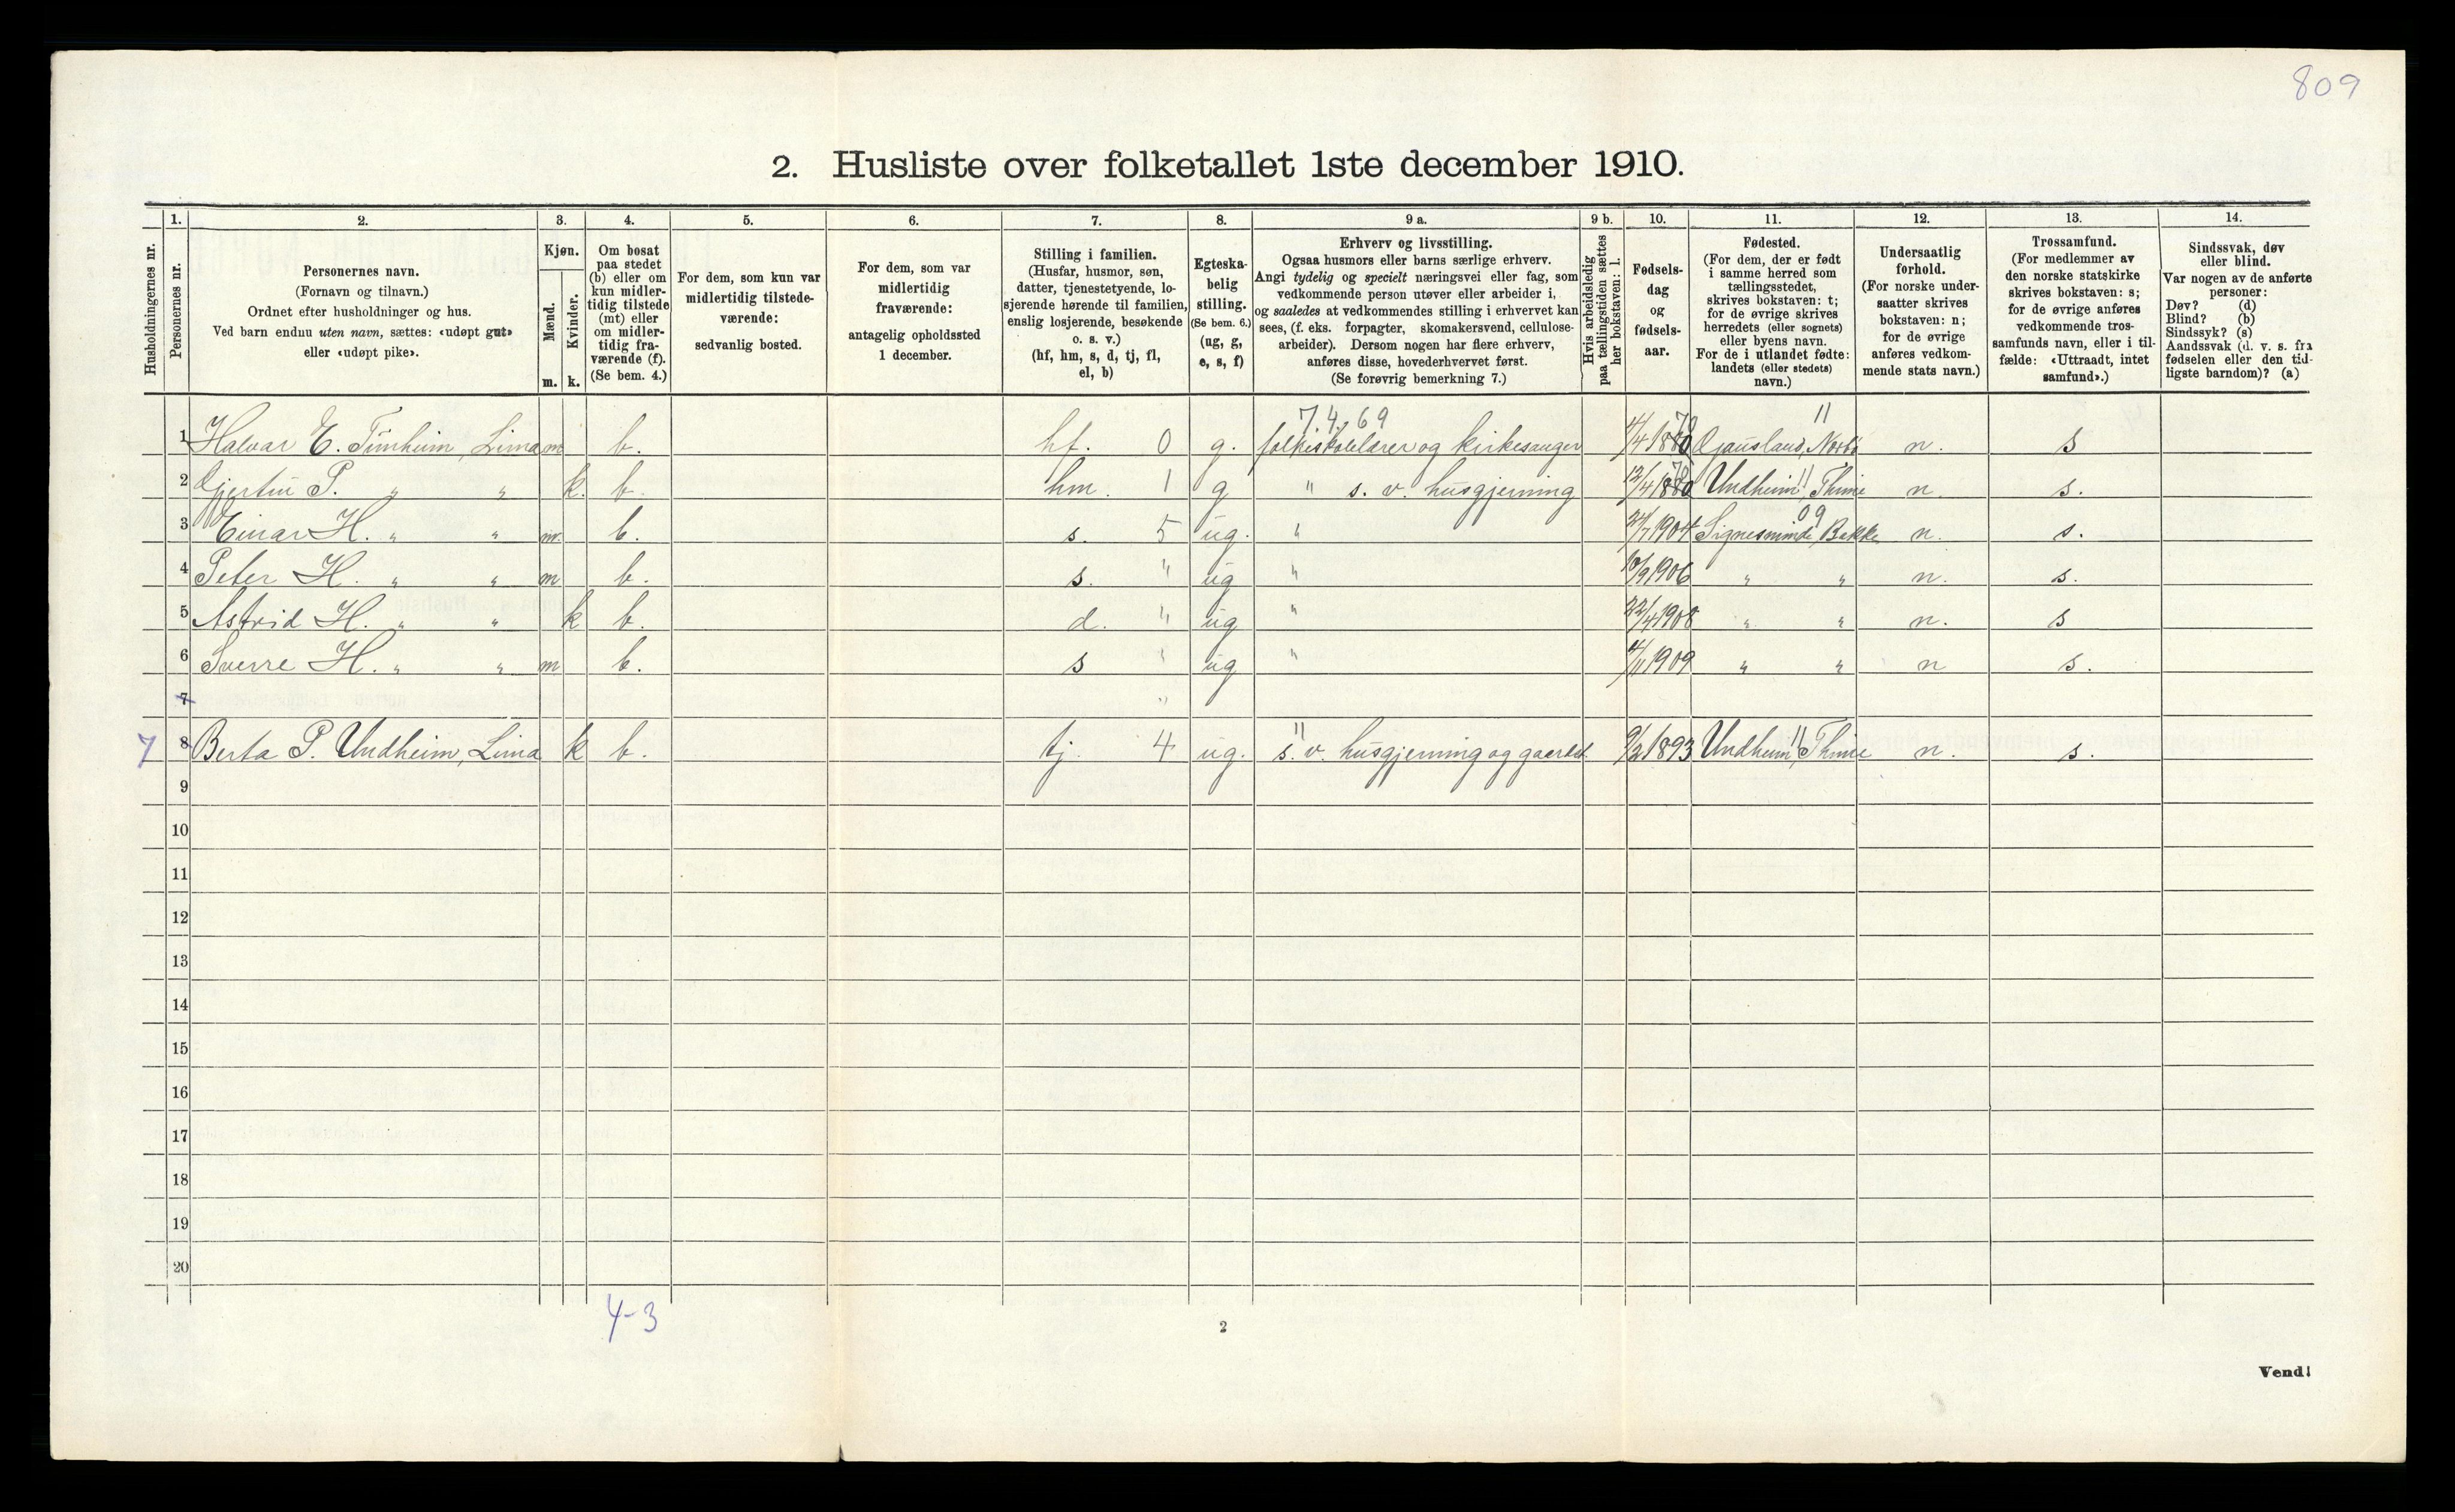 809
2. Husliste over folketallet 1ste december 1910.
Husholdningernes nr.
1. Personernes nr.
2. Personernes navn.
(Fornavn og tilnavn.)
Ordnet efter husholdninger og hus.
Ved barn endnu uten navn, sættes: «udøpt gut»
eller «udøpt pike».
3. Kjøn.
Mænd. Kvinder.
m. k.
4. Om bosat
paa stedet
(b) eller om
kun midler-
tidig tilstede
(mt) eller
om midler-
tidig fra-
værende (f).
(Se bem. 4.)
5. For dem, som kun var
midlertidig tilstede-
værende:
sedvanlig bosted.
6. For dem, som var
midlertidig
fraværende:
antagelig opholdssted
1 december.
7. Stilling i familien.
(Husfar, husmor, søn,
datter, tjenestetyende, lo-
sjerende hørende til familien,
enslig losjerende, besøkende
o. s. v.)
(hf, hm, s, d, tj, fl,
el, b)
8. Egteska-
belig
stilling.
(Se bem. 6.)
(ug, g,
e, s, f)
9 a. Erhverv og livsstilling.
Ogsaa husmors eller barns særlige erhverv.
Angi tydelig og specielt næringsvei eller fag, som
vedkommende person utøver eller arbeider i,
og saaledes at vedkommendes stilling i erhvervet kan
sees, (f. eks. forpagter, skomakersvend, cellulose-
arbeider). Dersom nogen har flere erhverv,
anføres disse, hovederhvervet først.
(Se forøvrig bemerkning 7.)
9 b. Hvis arbeidsledig
paa tællingstiden sættes
her bokstaven: l.
10. Fødsels-
dag
og
fødsels-
aar.
11. Fødested.
(For dem, der er født
i samme herred som
tællingsstedet,
skrives bokstaven: t;
for de øvrige skrives
herredets (eller sognets)
eller byens navn.
For de i utlandet fødte:
landets (eller stedets)
navn.)
12. Undersaatlig
forhold.
(For norske under-
saatter skrives
bokstaven: n;
for de øvrige
anføres vedkom-
mende stats navn.)
13. Trossamfund.
(For medlemmer av
den norske statskirke
skrives bokstaven: s;
for de øvrige anføres
vedkommende tros-
samfunds navn, eller i til-
fælde: «Uttraadt, intet
samfund».)
14. Sindssvak, døv
eller blind.
Var nogen av de anførte
personer:
Døv? (d)
Blind? (b)
Sindssyk? (s)
Aandssvak (d. v. s. fra
fødselen eller den tid-
ligste barndom)? (a)
7.4.69 11
1 Halvar E. Timheim, Lima m b. hf. 0 g. folkeskolelærer og kirkesanger n. s
2 Gjertin P. " " k. b. hm. 1 g " s. v. husgjerning Undheim, Thime n. s.
09
3 Einar H. " " m. b. s. 5 ug. " 24/7 1904 Signesminde, Bakke n. s.
4 Peter H. " " m b. s. " ug " 10/9 1906 " " n. s.
5 Astrid H. " " k b. d. " ug " 22/4 1908 " " n. s
6 Sverre H. " " m b. s " ug " 4/11 1909 " " n s.
7 "
7 8 Berta P. Undheim, Lima k b. tj. 4 ug. s. v. husgjerning og 9/2 1893 Undheim, Thime n. s.
9
10
11
12
13
14
15
16
17
18
19
20
4-3
2
Vend!